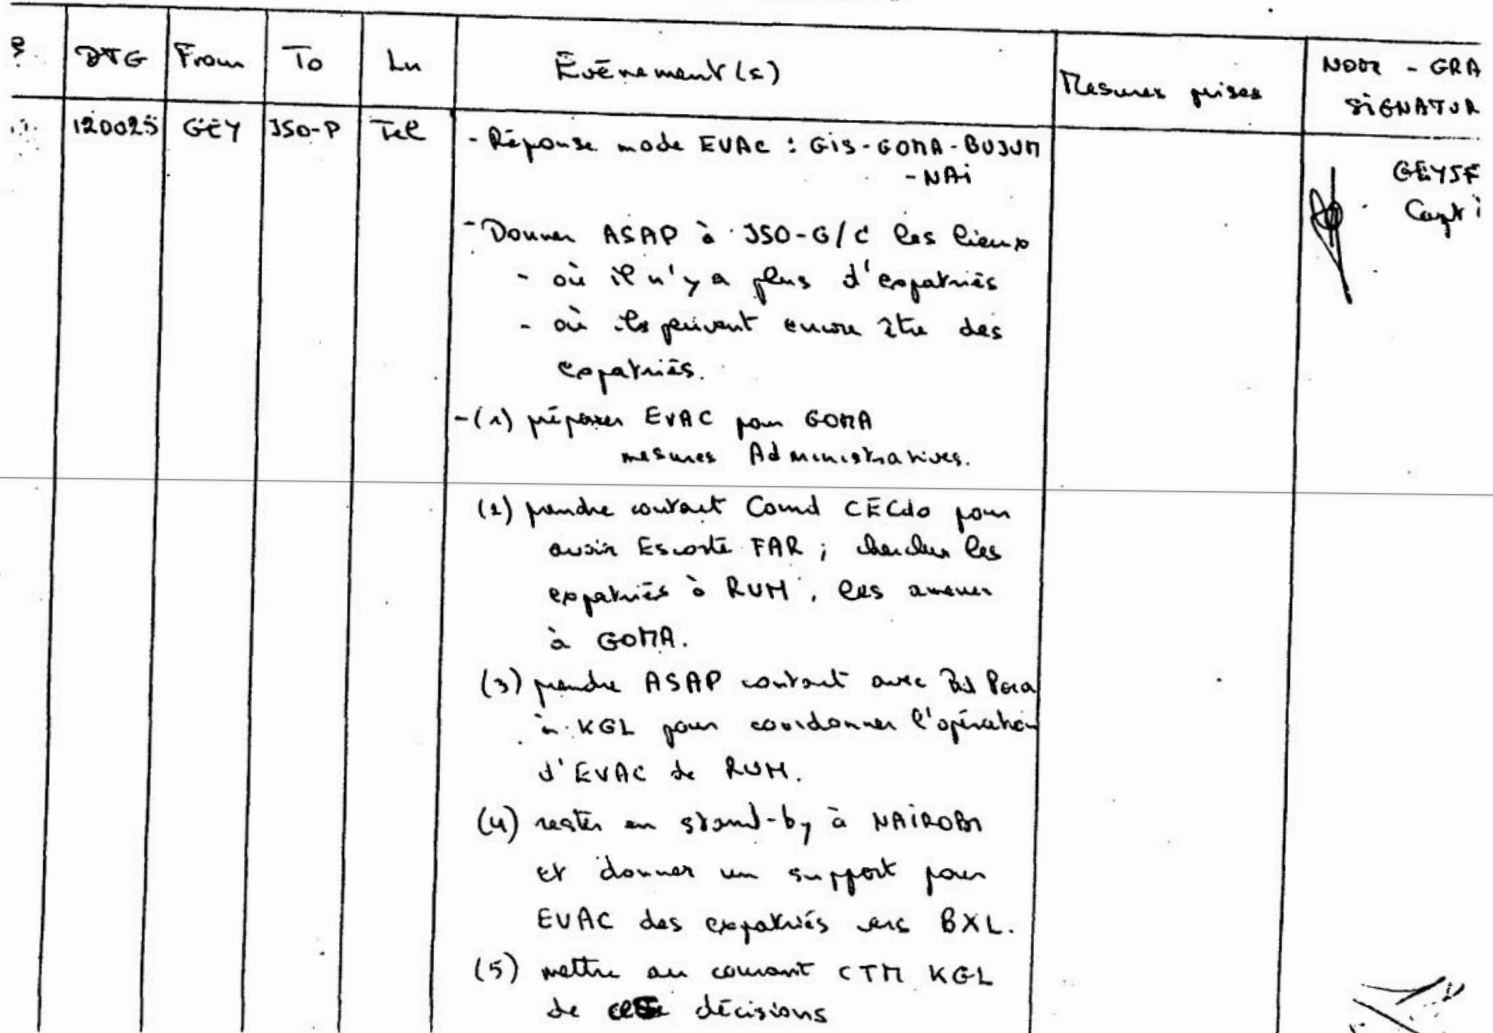 DTG From To Ln Événement(s) Mesures prises NOM - GRA
SIGNATUR
120025 GEY JSO-P Tel - Réponse mode EVAC : GIS-GOMA-BUJUM
-NAI
GEYSE
Capt
- Donner ASAP à JSO-G/C les lieux
- où il n'y a plus d'expatriés
- où ils peuvent encore être des
expatriés.
-(1) préparer EVAC pour GOMA
mesures Administratives.
(2) prendre contact Comd CECdo pour
avoir Escorte FAR ; chercher les
expatriés à RUH, les amener
à GOMA.
(3) prendre ASAP contact avec Para
à KGL pour coordonner l'opération
d'EVAC de RUH.
(4) rester en stand-by à NAIROBI
et donner un support pour
EVAC des expatriés vers BXL.
(5) mettre au courant CTM KGL
de décisions